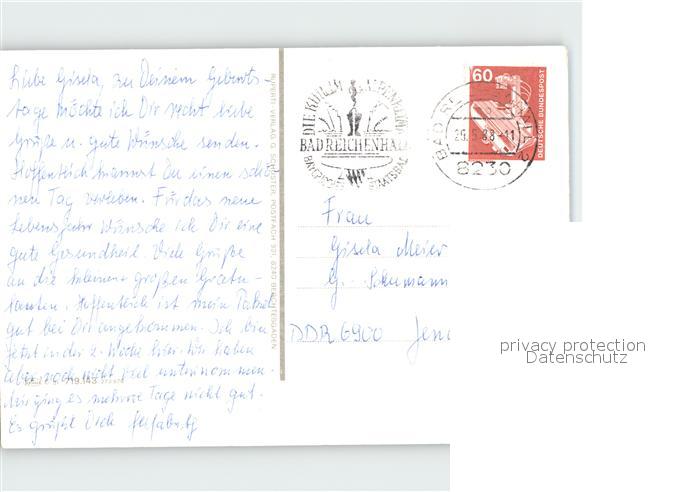 Liebe Gisela, zu Deinem Geburts-
tage möchte ich Dir recht liebe
Grüße u. gute Wünsche senden.
Hoffentlich kannst Du einen schö-
nen Tag verleben. Für das neue
Lebensjahr wünsche ich Dir eine
gute Gesundheit. Viele Grüße
an die kleinen + großen Gratu-
lanten. Hoffentlich ist mein Paket
gut bei Dir angekommen. Ich bin
jetzt in der 2. Woche hier. Wir haben
aber noch nicht viel unternommen.
Mir ging es mehrere Tage nicht gut.
Es grüßt Dich
719.143
RUPERTI-VERLAG G. SCHLÜTER, POSTFACH 931, 8240 BERCHTESGADEN
DIE KUREN
BAD REICHENHALL
BAYERISCHES STAATSBAD
60
DEUTSCHE BUNDESPOST
BAD REICHENHALL 2
26.5.88-11
8230
Frau
Gisela Meier
G. Schumann
DDR 6900 Jena
privacy protection
Datenschutz